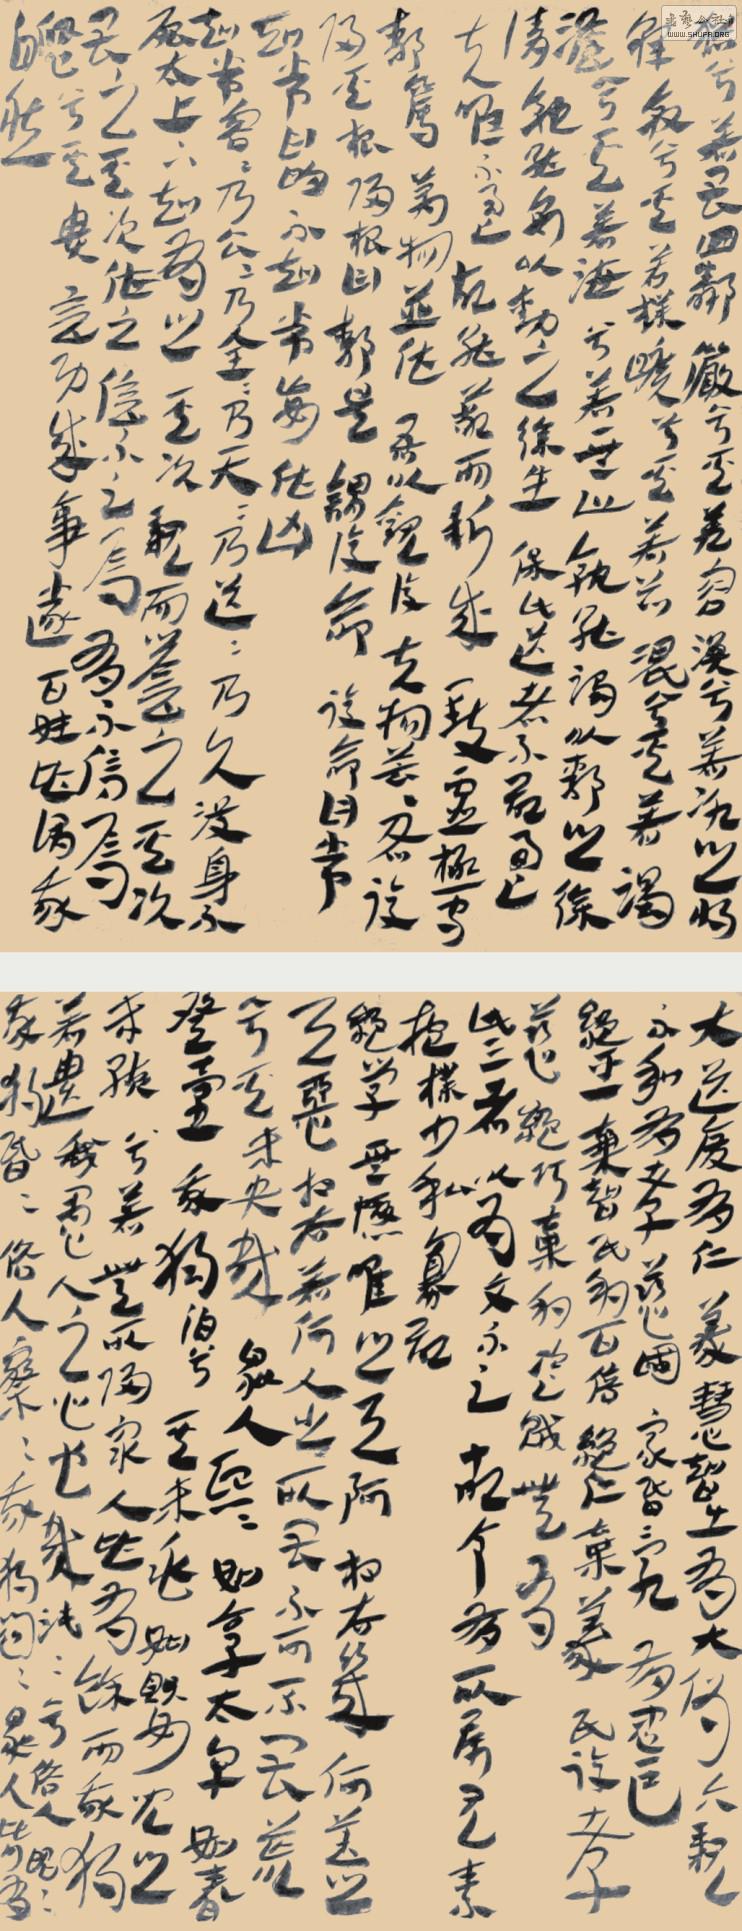 猶兮若畏四鄰儼兮其若容渙兮若冰之將
釋敦兮其若樸曠兮其若谷混兮其若濁
澹兮其若海兮若無止孰能濁以靜之徐
清孰能安以動之徐生保此道者不欲盈
夫唯不盈故能蔽而新成致虛極守
靜篤萬物並作吾以觀復夫物芸芸各復
歸其根歸根曰靜是謂復命復命曰常
知常曰明不知常妄作凶
知常容容乃公公乃全全乃天天乃道道乃久沒身不
殆太上下知有之其次親而譽之其次
畏之其次侮之信不足焉有不信焉
猶兮其貴言功成事遂百姓皆謂我
自然
大道廢有仁義慧智出有大偽六親
不和有孝慈國家昏亂有忠臣
絕聖棄智民利百倍絕仁棄義民復孝
慈絕巧棄利盜賊無有
此三者以為文不足故令有所屬見素
抱樸少私寡欲
絕學無憂唯之與阿相去幾何善之
與惡相去若何人之所畏不可不畏荒
兮其未央哉眾人熙熙如享太牢如春
登臺我獨泊兮其未兆如嬰兒之
未孩兮若無所歸眾人皆有餘而我獨
若遺我愚人之心也哉沌沌兮俗人昭昭
我獨昏昏俗人察察我獨悶悶眾人皆有
WWW.SHUFA.ORG